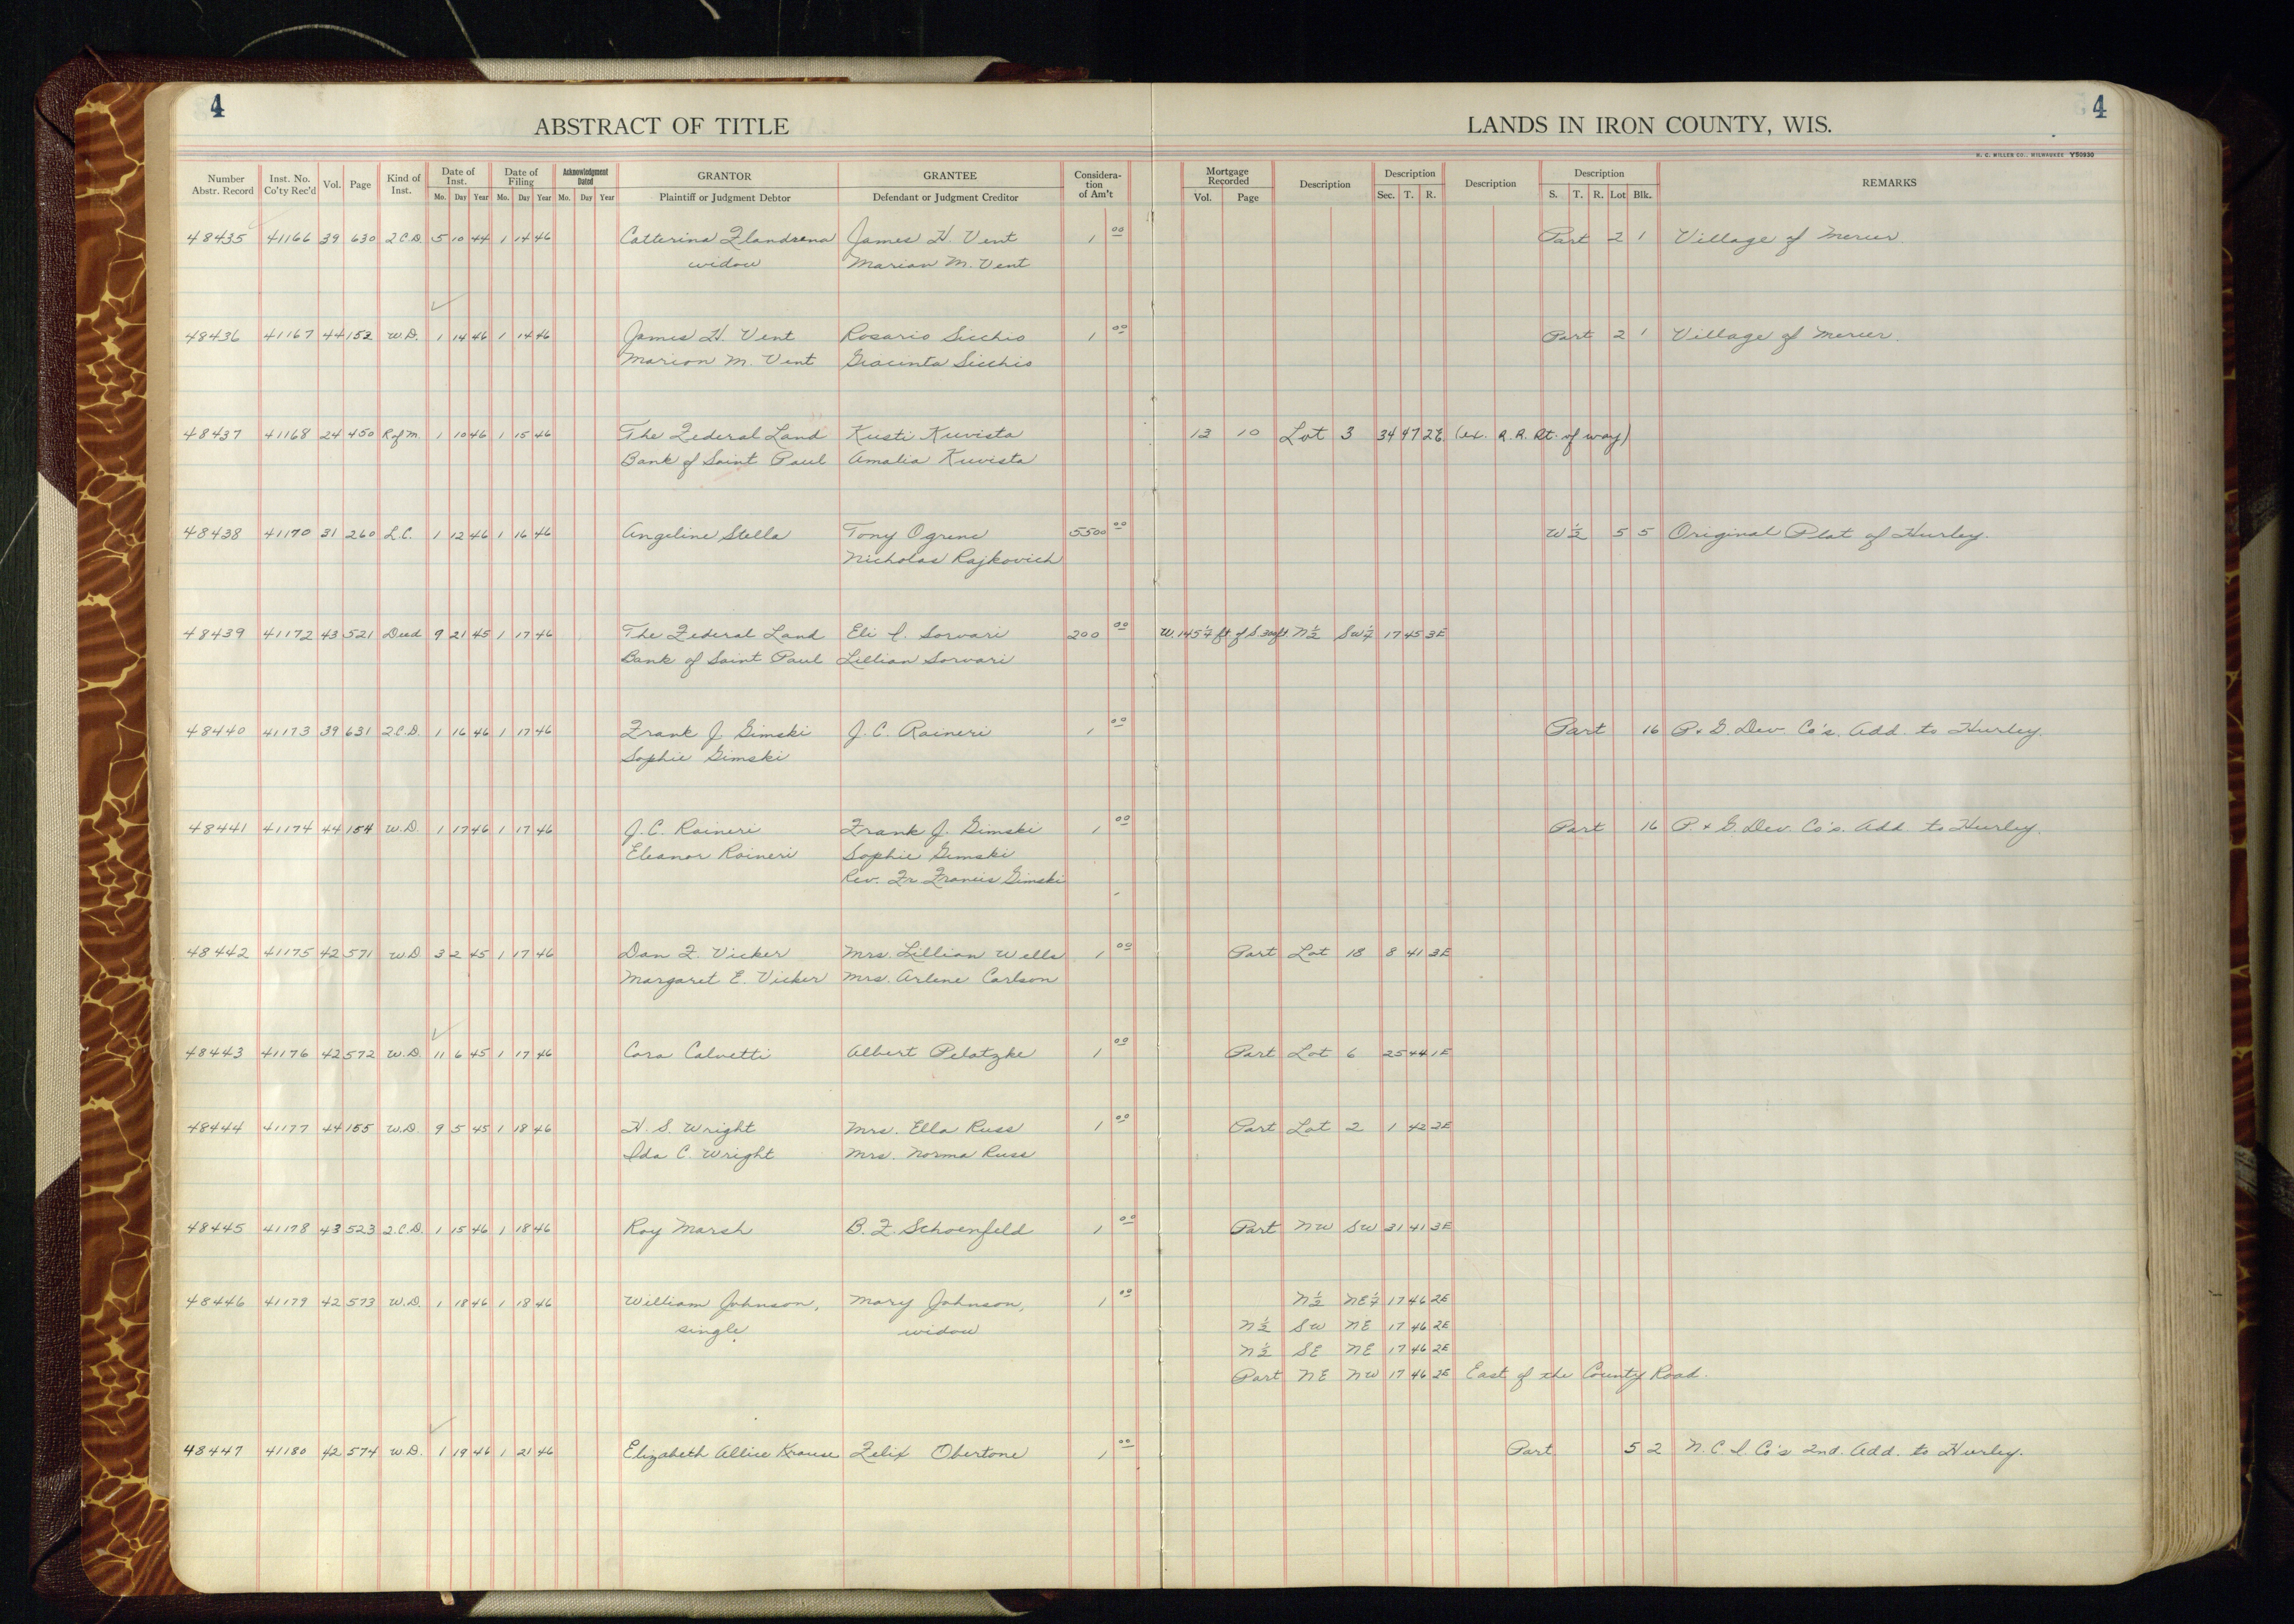 4
4
ABSTRACT OF TITLE
LANDS IN IRON COUNTY, WIS.
H. C. MILLER CO., MILWAUKEE Y50930
Number Abstr. Record | Inst. No. Co'ty Rec'd | Vol. | Page | Kind of Inst. | Date of Inst. Mo. Day Year | Date of Filing Mo. Day Year | Acknowledgment Dated Mo. Day Year | GRANTOR Plaintiff or Judgment Debtor | GRANTEE Defendant or Judgment Creditor | Considera-tion of Am't | Mortgage Recorded Vol. Page | Description | Description Sec. T. R. | Description | Description S. T. R. Lot Blk. | REMARKS
48435 41166 39 630 2.C.D. 5 10 44 1 14 46 Catterina Flandrena James H. Vent 1 00 Part 2 1 Village of Mercer.
widow Marian M. Vent
48436 41167 44 152 W.D. 1 14 46 1 14 46 James H. Vent Rosario Sicchio 1 00 Part 2 1 Village of Mercer.
Marion M. Vent Giacinta Sicchio
48437 41168 24 450 R of M. 1 10 46 1 15 46 The Federal Land Kusti Kuvista 13 10 Lot 3 34 47 2E. (ex. R.R. Rt. of way)
Bank of Saint Paul Amalia Kuvista
48438 41170 31 260 L.C. 1 12 46 1 16 46 Angeline Stella Tony Ogrenc 5500 00 W 1/2 5 5 Original Plat of Hurley.
Nicholas Rajkovich
48439 41172 43 521 Deed 9 21 45 1 17 46 The Federal Land Eli I. Sorvari 200 00 W. 145 1/4 ft. of S. 300 ft. N 1/2 SW 1/4 17 45 3E
Bank of Saint Paul Lillian Sorvari
48440 41173 39 631 2.C.D. 1 16 46 1 17 46 Frank J. Gimski J. C. Raineri 1 00 Part 16 P. & G. Dev. Co's. Add. to Hurley.
Sophie Gimski
48441 41174 44 154 W.D. 1 17 46 1 17 46 J. C. Raineri Frank J. Gimski 1 00 Part 16 P. & G. Dev. Co's. Add. to Hurley.
Eleanor Raineri Sophie Gimski
Rev. Fr. Francis Gimski
48442 41175 42 571 W.D 3 2 45 1 17 46 Dan F. Vicker Mrs. Lillian Wells 1 00 Part Lot 18 8 41 3E
Margaret E. Vicker Mrs. Arlene Carlson
48443 41176 42 572 W.D. 11 6 45 1 17 46 Cora Calvetti Albert Pelatzke 1 00 Part Lot 6 25 44 1E
48444 41177 44 155 W.D. 9 5 45 1 18 46 H. S. Wright Mrs. Ella Russ 1 00 Part Lot 2 1 42 2E
Ida C. Wright Mrs. Norma Russ
48445 41178 43 523 2.C.D. 1 15 46 1 18 46 Roy Marsh B. F. Schoenfeld 1 00 Part NW SW 31 41 3E
48446 41179 42 573 W.D. 1 18 46 1 18 46 William Johnson, Mary Johnson, 1 00 N 1/2 NE 1/4 17 46 2E
single. widow N 1/2 SW NE 17 46 2E
N 1/2 SE NE 17 46 2E
Part NE NW 17 46 2E East of the County Road.
48447 41180 42 574 W.D. 1 19 46 1 21 46 Elizabeth Allice Krause Felix Obertone 1 00 Part 5 2 N. C. I. Co's 2nd. Add. to Hurley.